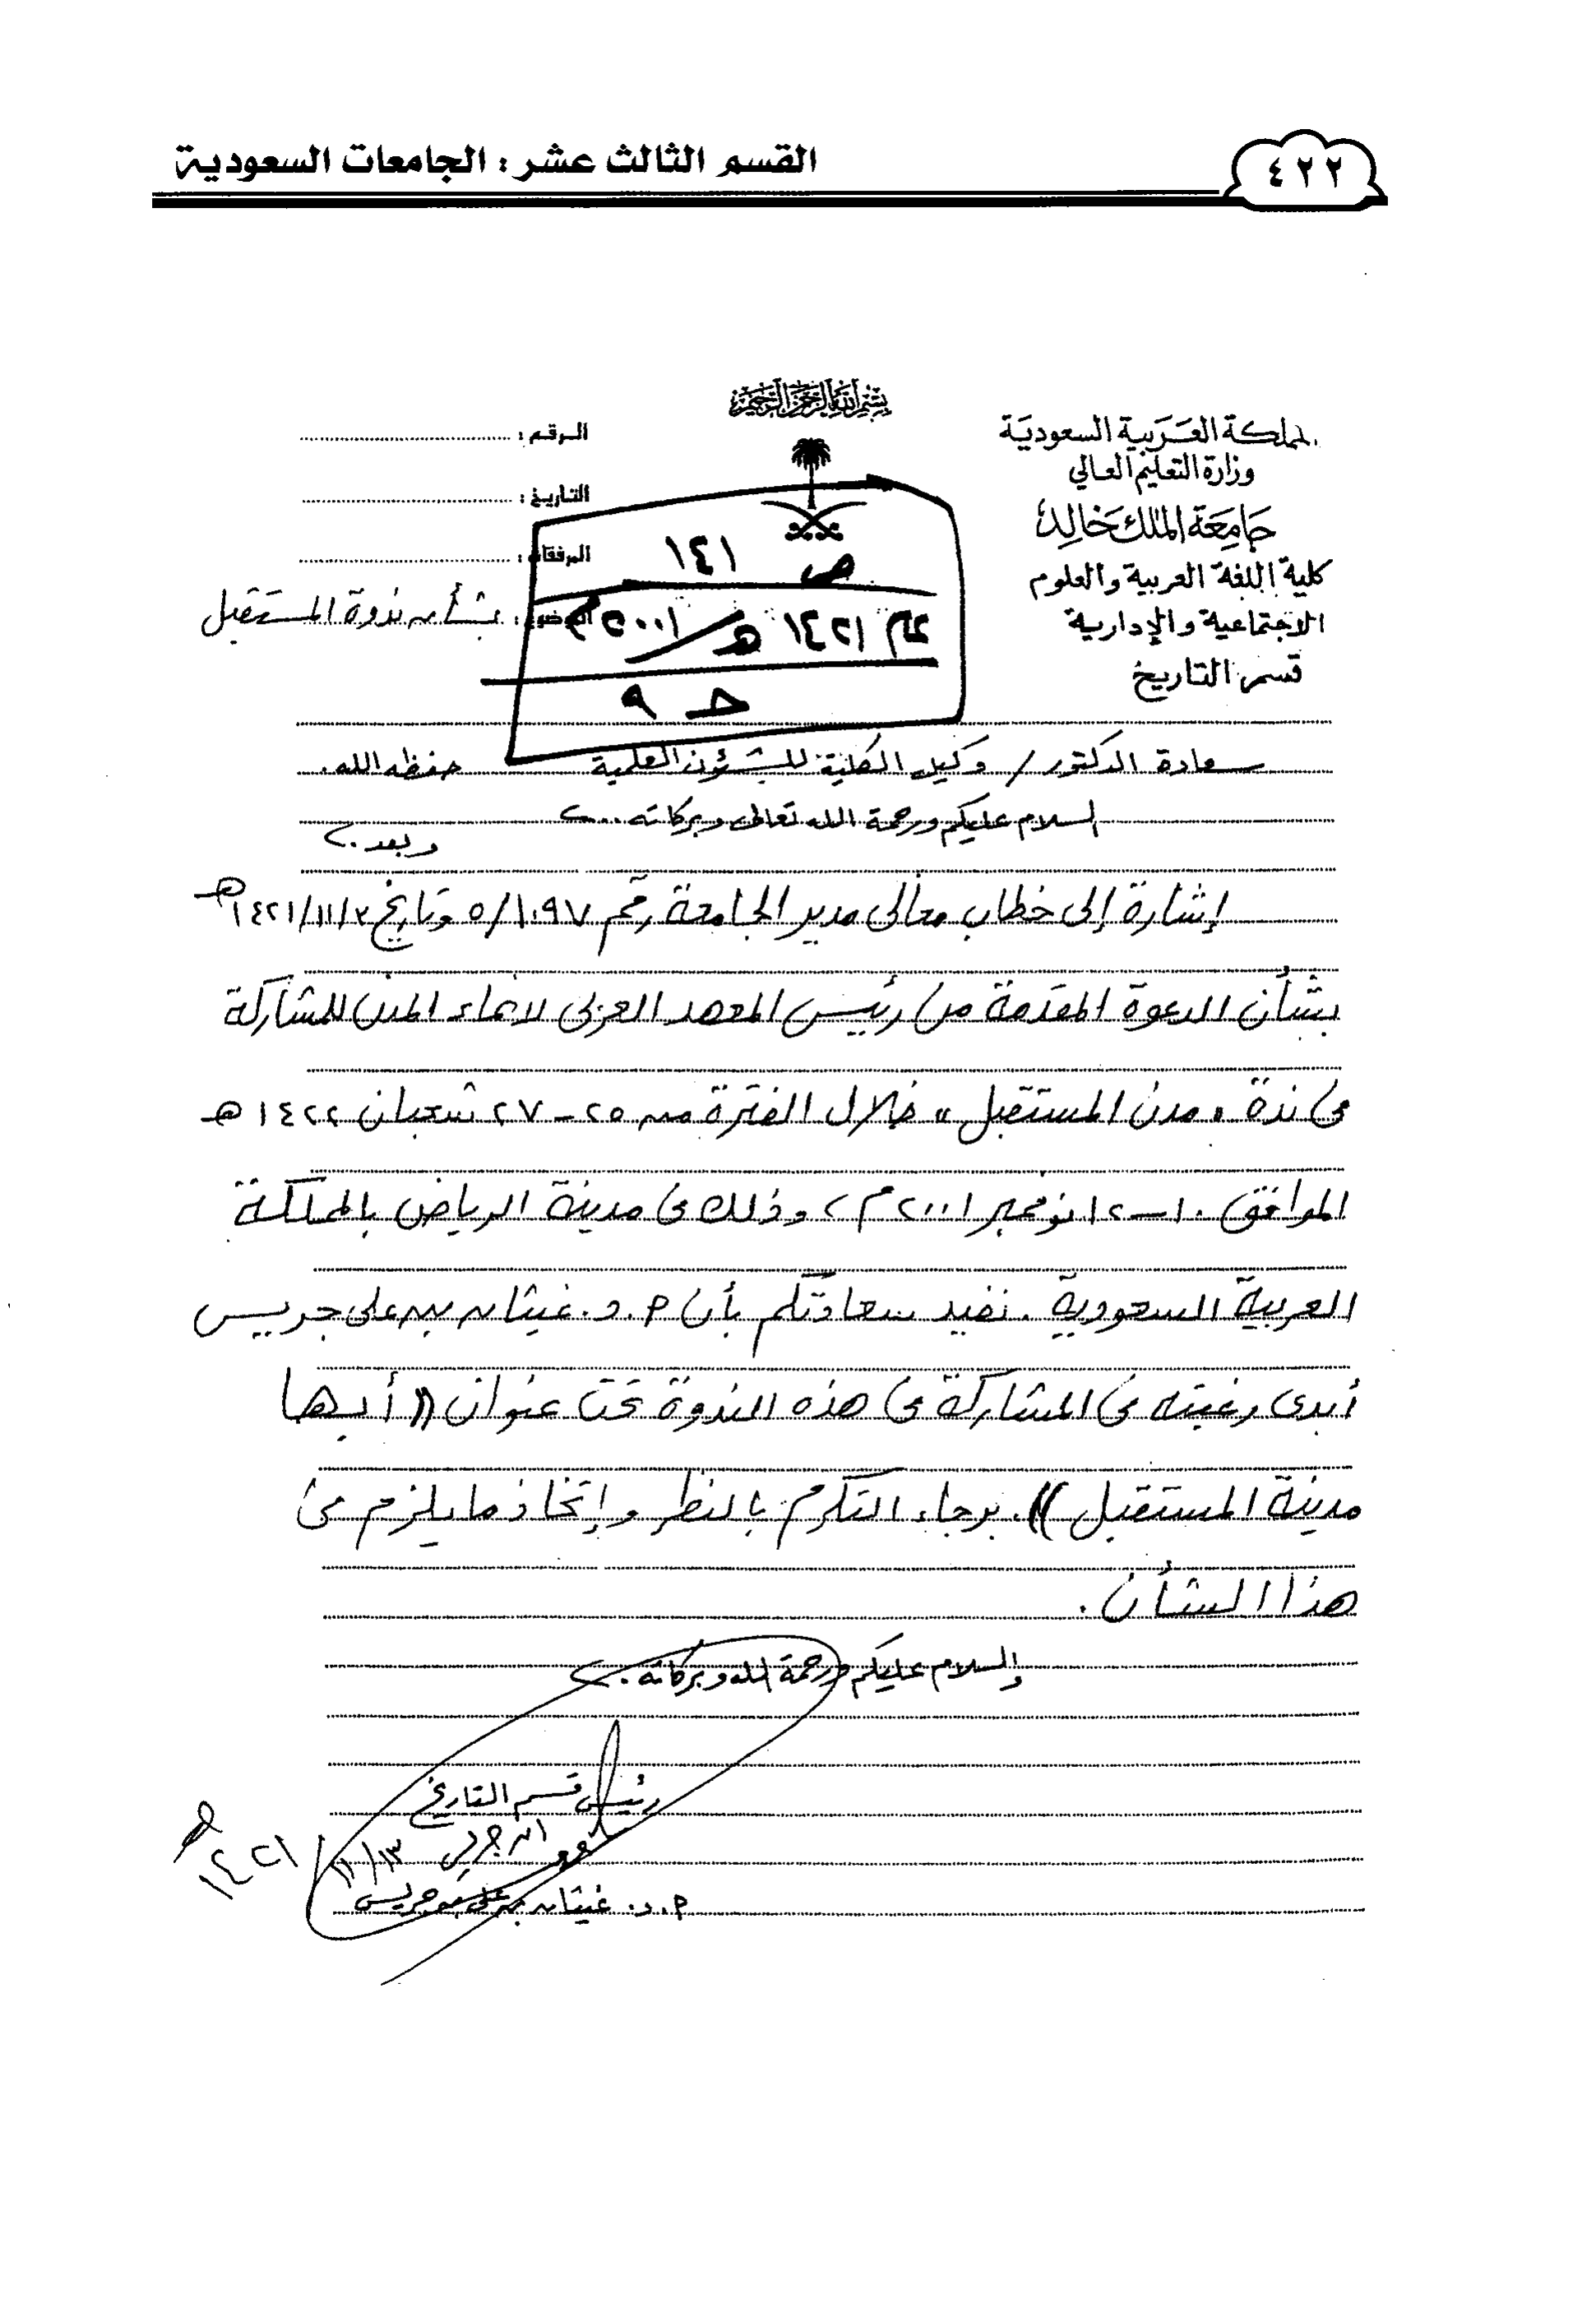 القسم الثالث عشر : الجامعات السعودية
٤٢٢
بسم الله الرحمن الرحيم
المملكة العربية السعودية
وزارة التعليم العالي
جامعة الملك خالد
كلية اللغة العربية والعلوم
الاجتماعية والإدارية
قسم التاريخ
الرقم :
التاريخ :
المرفقات :
الموضوع : بشأن ندوة المستقبل
ص ١٤١
١٤٢١ هـ / ٢٠٠١م
حـ ٩
سعادة الدكتور / وكيل الكلية للشئون العلمية حفظه الله.
السلام عليكم ورحمة الله تعالى وبركاته ..
وبعد .
إشارة إلى خطاب معالي مدير الجامعة رقم ٥/١٠٩٧ وتاريخ ١٤٢١/١١/٢هـ
بشأن الدعوة المقدمة من رئيس المعهد العربي لانماء المدن للمشاركة
في ندة "مدن المستقبل" خلال الفترة من ٢٥ - ٢٧ شعبان ١٤٢٢هـ
الموافق ١٠-١٢ نوفمبر ٢٠٠١م، وذلك في مدينة الرياض بالمملكة
العربية السعودية . نفيد سعادتكم بأن أ.د. غيثان بن علي جريس
أبدى رغبته في المشاركة في هذه الندوة تحت عنوان ((أبها
مدينة المستقبل)). برجاء التكرم بالنظر وإتخاذ ما يلزم في
هذا الشأن .
والسلام عليكم ورحمة الله وبركاته .
رئيس قسم التاريخ
١١/١٣/ ١٤٢١هـ
أ.د. غيثان بن علي بن جريس